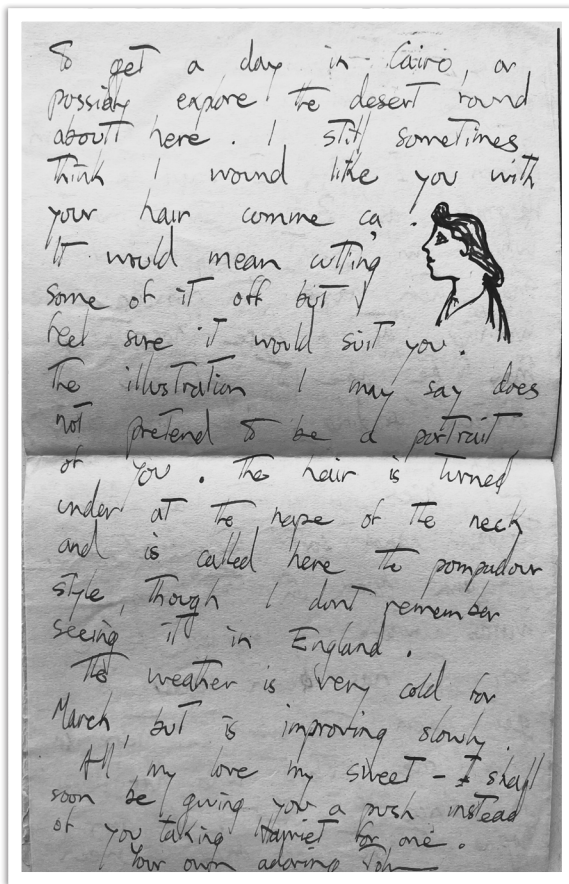 To get a day in Cairo, or
possibly expore the desert round
about here. I still sometimes
think I wound like you with
your hair comme ça.
It would mean cutting
some of it off but I
feel sure it would suit you.
The illustration I may say does
not pretend to be a portrait
of you. The hair is turned
under at the nape of the neck
and is called here the pompadour
style, though I dont remember
seeing it in England.
The weather is very cold for
March, but is improving slowly.
All my love my sweet – I shall
soon be giving you a push instead
of you taking Harriet for one.
Your own adoring